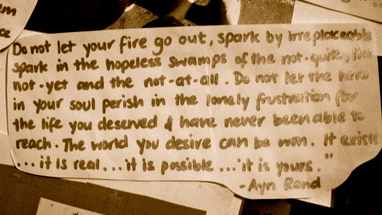 Do not let your fire go out, spark by irreplaceable
spark in the hopeless swamps of the not-quite, the
not-yet and the not-at-all. Do not let the hero
in your soul perish in the lonely frustration for
the life you deserved & have never been able to
reach. The world you desire can be won. It exists
...it is real...it is possible...it is yours."
-Ayn Rand